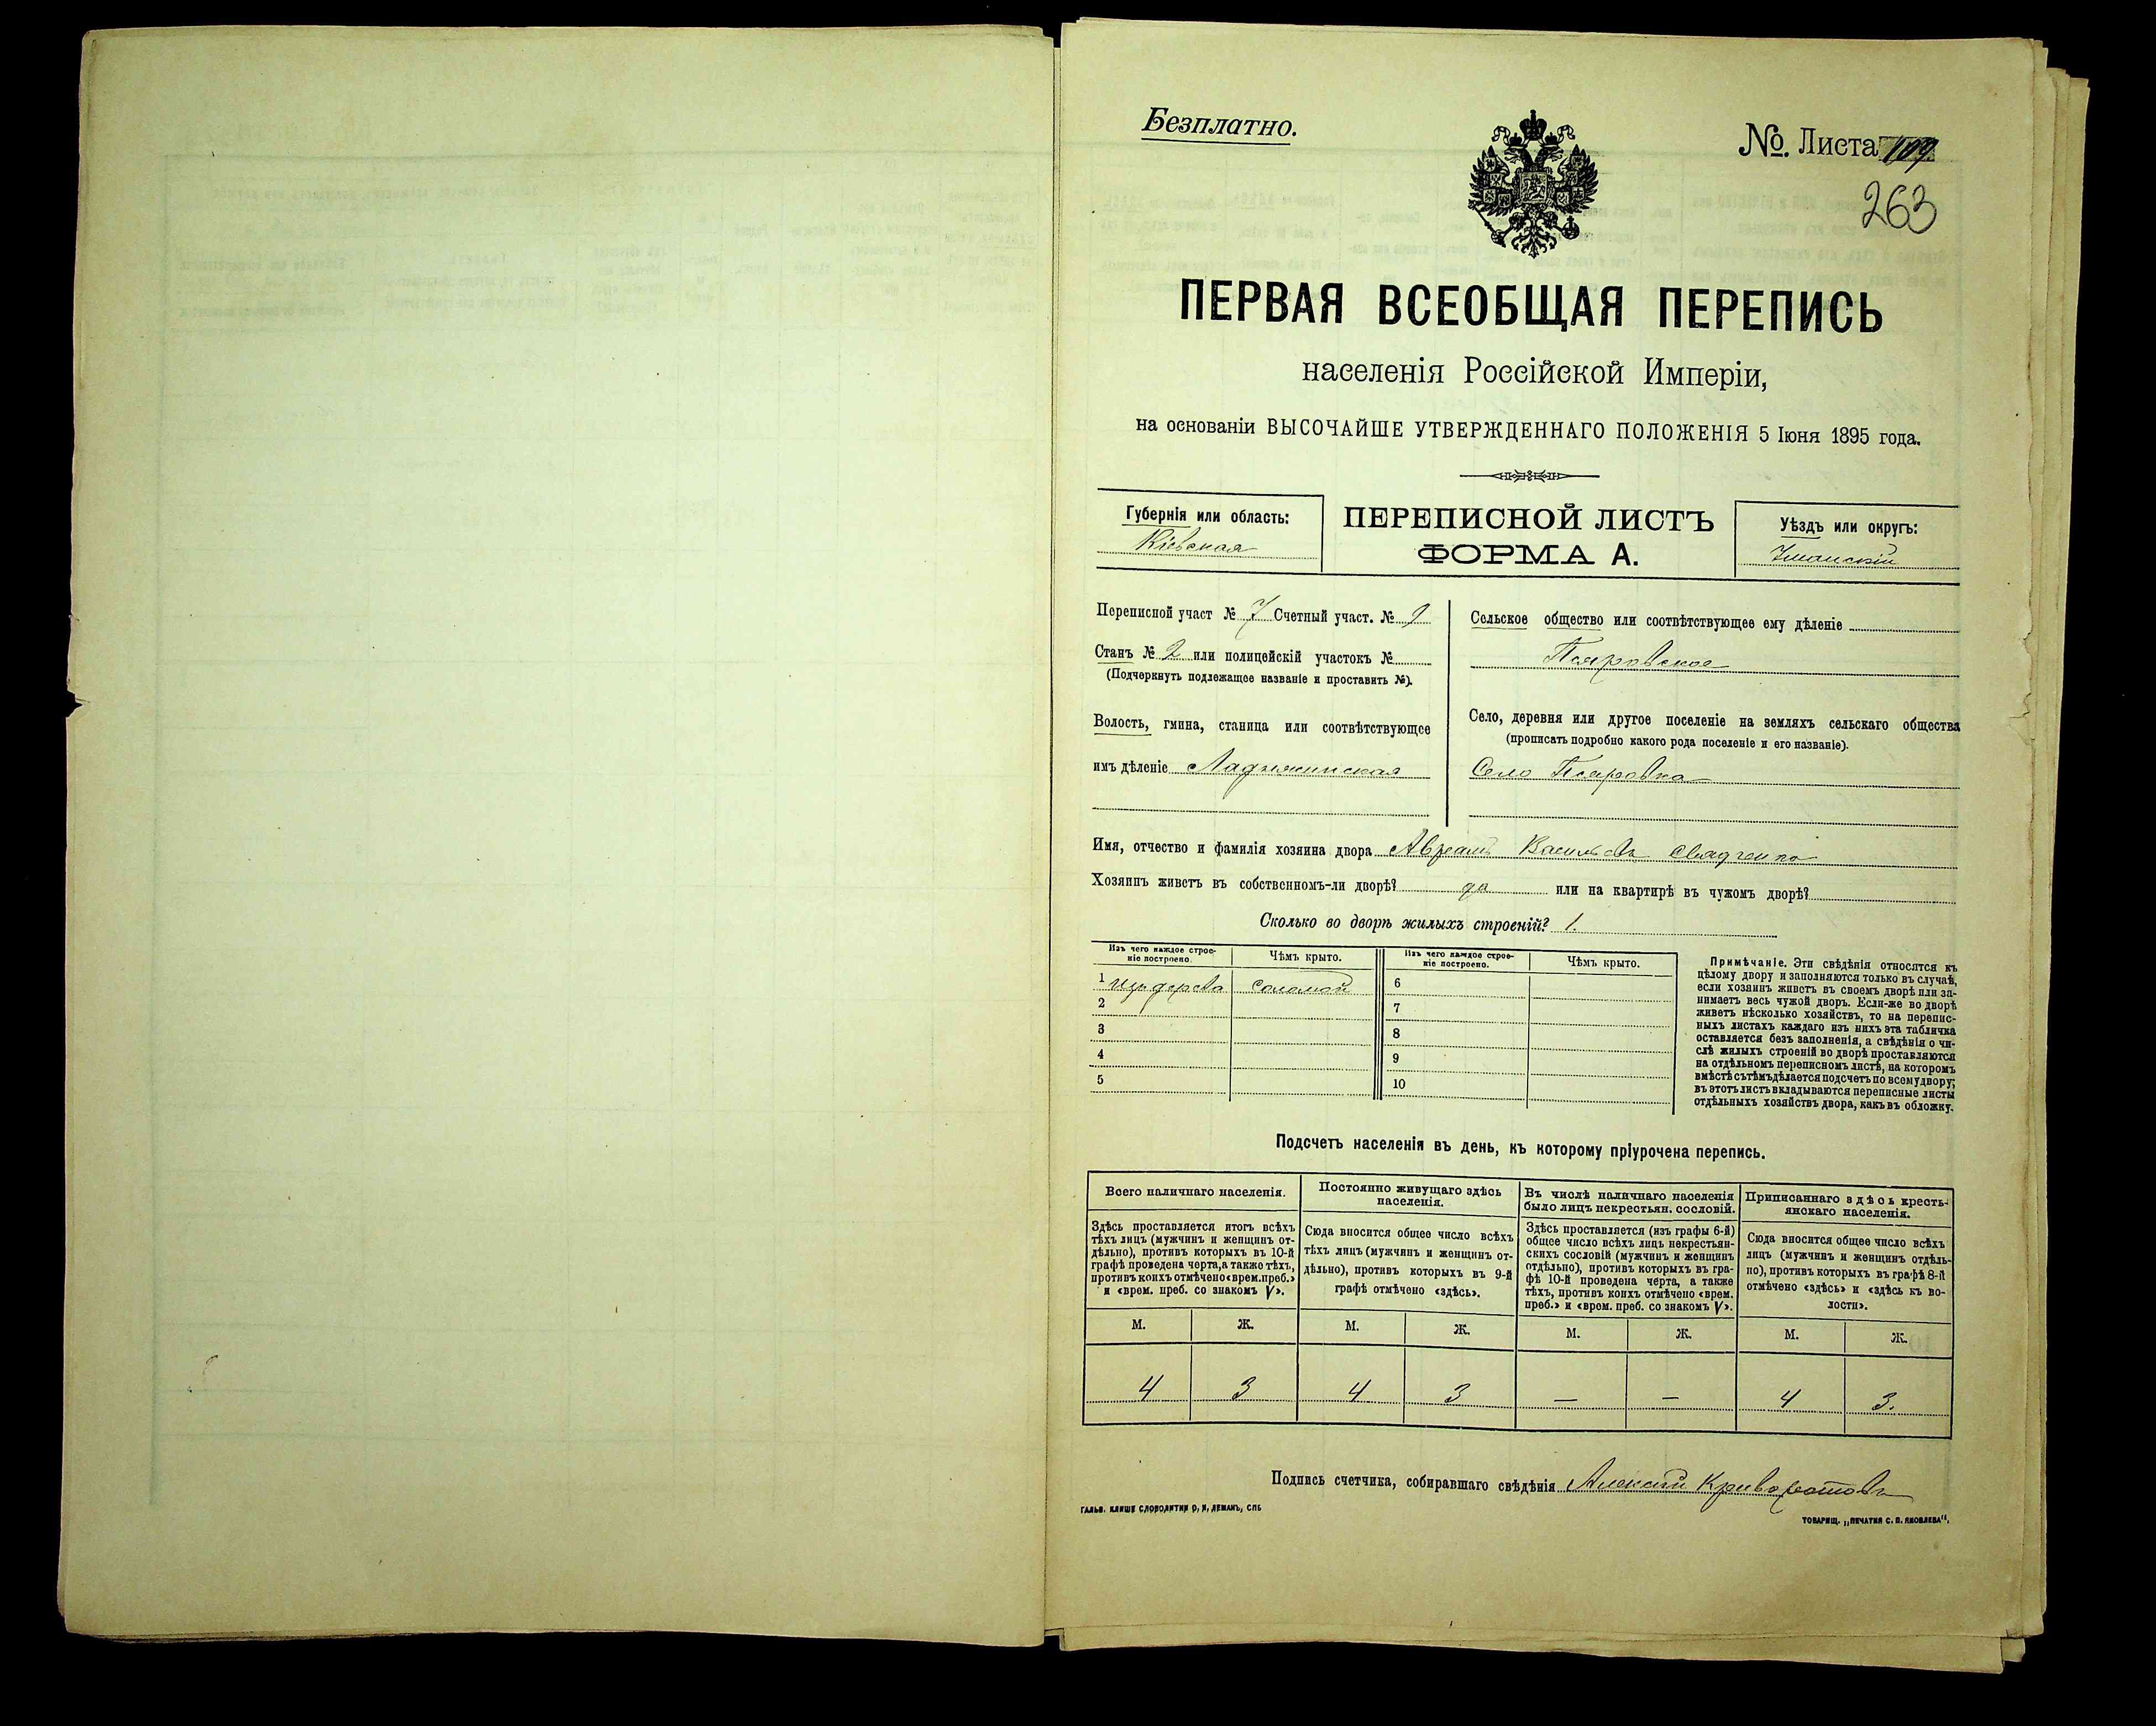 Безплатно.
№. Листа 109
263
ПЕРВАЯ ВСЕОБЩАЯ ПЕРЕПИСЬ
населенія Россійской Имперіи,
на основаніи ВЫСОЧАЙШЕ УТВЕРЖДЕННАГО ПОЛОЖЕНІЯ 5 Іюня 1895 года.
Губернія или область:
Кіевская
ПЕРЕПИСНОЙ ЛИСТЪ
ФОРМА А.
Уѣздъ или округъ:
Уманскій
Переписной участ № 7 Счетный участ. № 9
Станъ № 2 или полицейскій участокъ №
(Подчеркнуть подлежащее названіе и проставить №).
Волость, гмина, станица или соотвѣтствующее
имъ дѣленіе Ладыжинская
Сельское общество или соотвѣтствующее ему дѣленіе
Псяровское
Село, деревня или другое поселеніе на земляхъ сельскаго общества
(прописать подробно какого рода поселеніе и его названіе).
Село Псяровка
Имя, отчество и фамилія хозяина двора Авраамъ Васильевъ
Хозяинъ живетъ въ собственномъ-ли дворѣ? да или на квартирѣ въ чужомъ дворѣ?
Сколько во дворѣ жилыхъ строеній? 1.
Изъ чего каждое строе-
ніе построено.
Чѣмъ крыто.
Изъ чего каждое строе-
ніе построено.
Чѣмъ крыто.
1 изъ дерева соломой 6
2 7
3 8
4 9
5 10
Примѣчаніе. Эти свѣдѣнія относятся къ
цѣлому двору и заполняются только въ случаѣ,
если хозяинъ живетъ въ своемъ дворѣ или за-
нимаетъ весь чужой дворъ. Если-же во дворѣ
живетъ нѣсколько хозяйствъ, то на перепис-
ныхъ листахъ каждаго изъ нихъ эта табличка
оставляется безъ заполненія, а свѣдѣнія о чи-
слѣ жилыхъ строеній во дворѣ проставляются
на отдѣльномъ переписномъ листѣ, на которомъ
вмѣстѣ съ тѣмъ дѣлается подсчетъ по всему двору;
въ этотъ листъ вкладываются переписные листы
отдѣльныхъ хозяйствъ двора, какъ въ обложку.
Подсчетъ населенія въ день, къ которому пріурочена перепись.
Всего наличнаго населенія.
Здѣсь проставляется итогъ всѣхъ
тѣхъ лицъ (мужчинъ и женщинъ от-
дѣльно), противъ которыхъ въ 10-й
графѣ проведена черта, а также тѣхъ,
противъ коихъ отмѣчено «врем. преб.»
и «врем. преб. со знакомъ V».
Постоянно живущаго здѣсь
населенія.
Сюда вносится общее число всѣхъ
тѣхъ лицъ (мужчинъ и женщинъ от-
дѣльно), противъ которыхъ въ 9-й
графѣ отмѣчено «здѣсь».
Въ числѣ наличнаго населенія
было лицъ некрестьян. сословій.
Здѣсь проставляется (изъ графы 6-й)
общее число всѣхъ лицъ некрестьян-
скихъ сословій (мужчинъ и женщинъ
отдѣльно), противъ которыхъ въ гра-
фѣ 10-й проведена черта, а также
тѣхъ, противъ коихъ отмѣчено «врем.
преб.» и «врем. преб. со знакомъ V».
Приписаннаго здѣсь кресть-
янскаго населенія.
Сюда вносится общее число всѣхъ
лицъ (мужчинъ и женщинъ отдѣль-
но), противъ которыхъ въ графѣ 8-й
отмѣчено «здѣсь» и «здѣсь къ во-
лости».
М. Ж. М. Ж. М. Ж. М. Ж.
4 3 4 3 — — 4 3.
Подпись счетчика, собиравшаго свѣдѣнія Алексѣй Криворотовъ
ГАЛЬВ. КЛИШЕ СЛОВОЛИТНИ О. И. ЛЕМАНЪ, СПБ
ТОВАРИЩ. „ПЕЧАТНЯ С. П. ЯКОВЛЕВА".